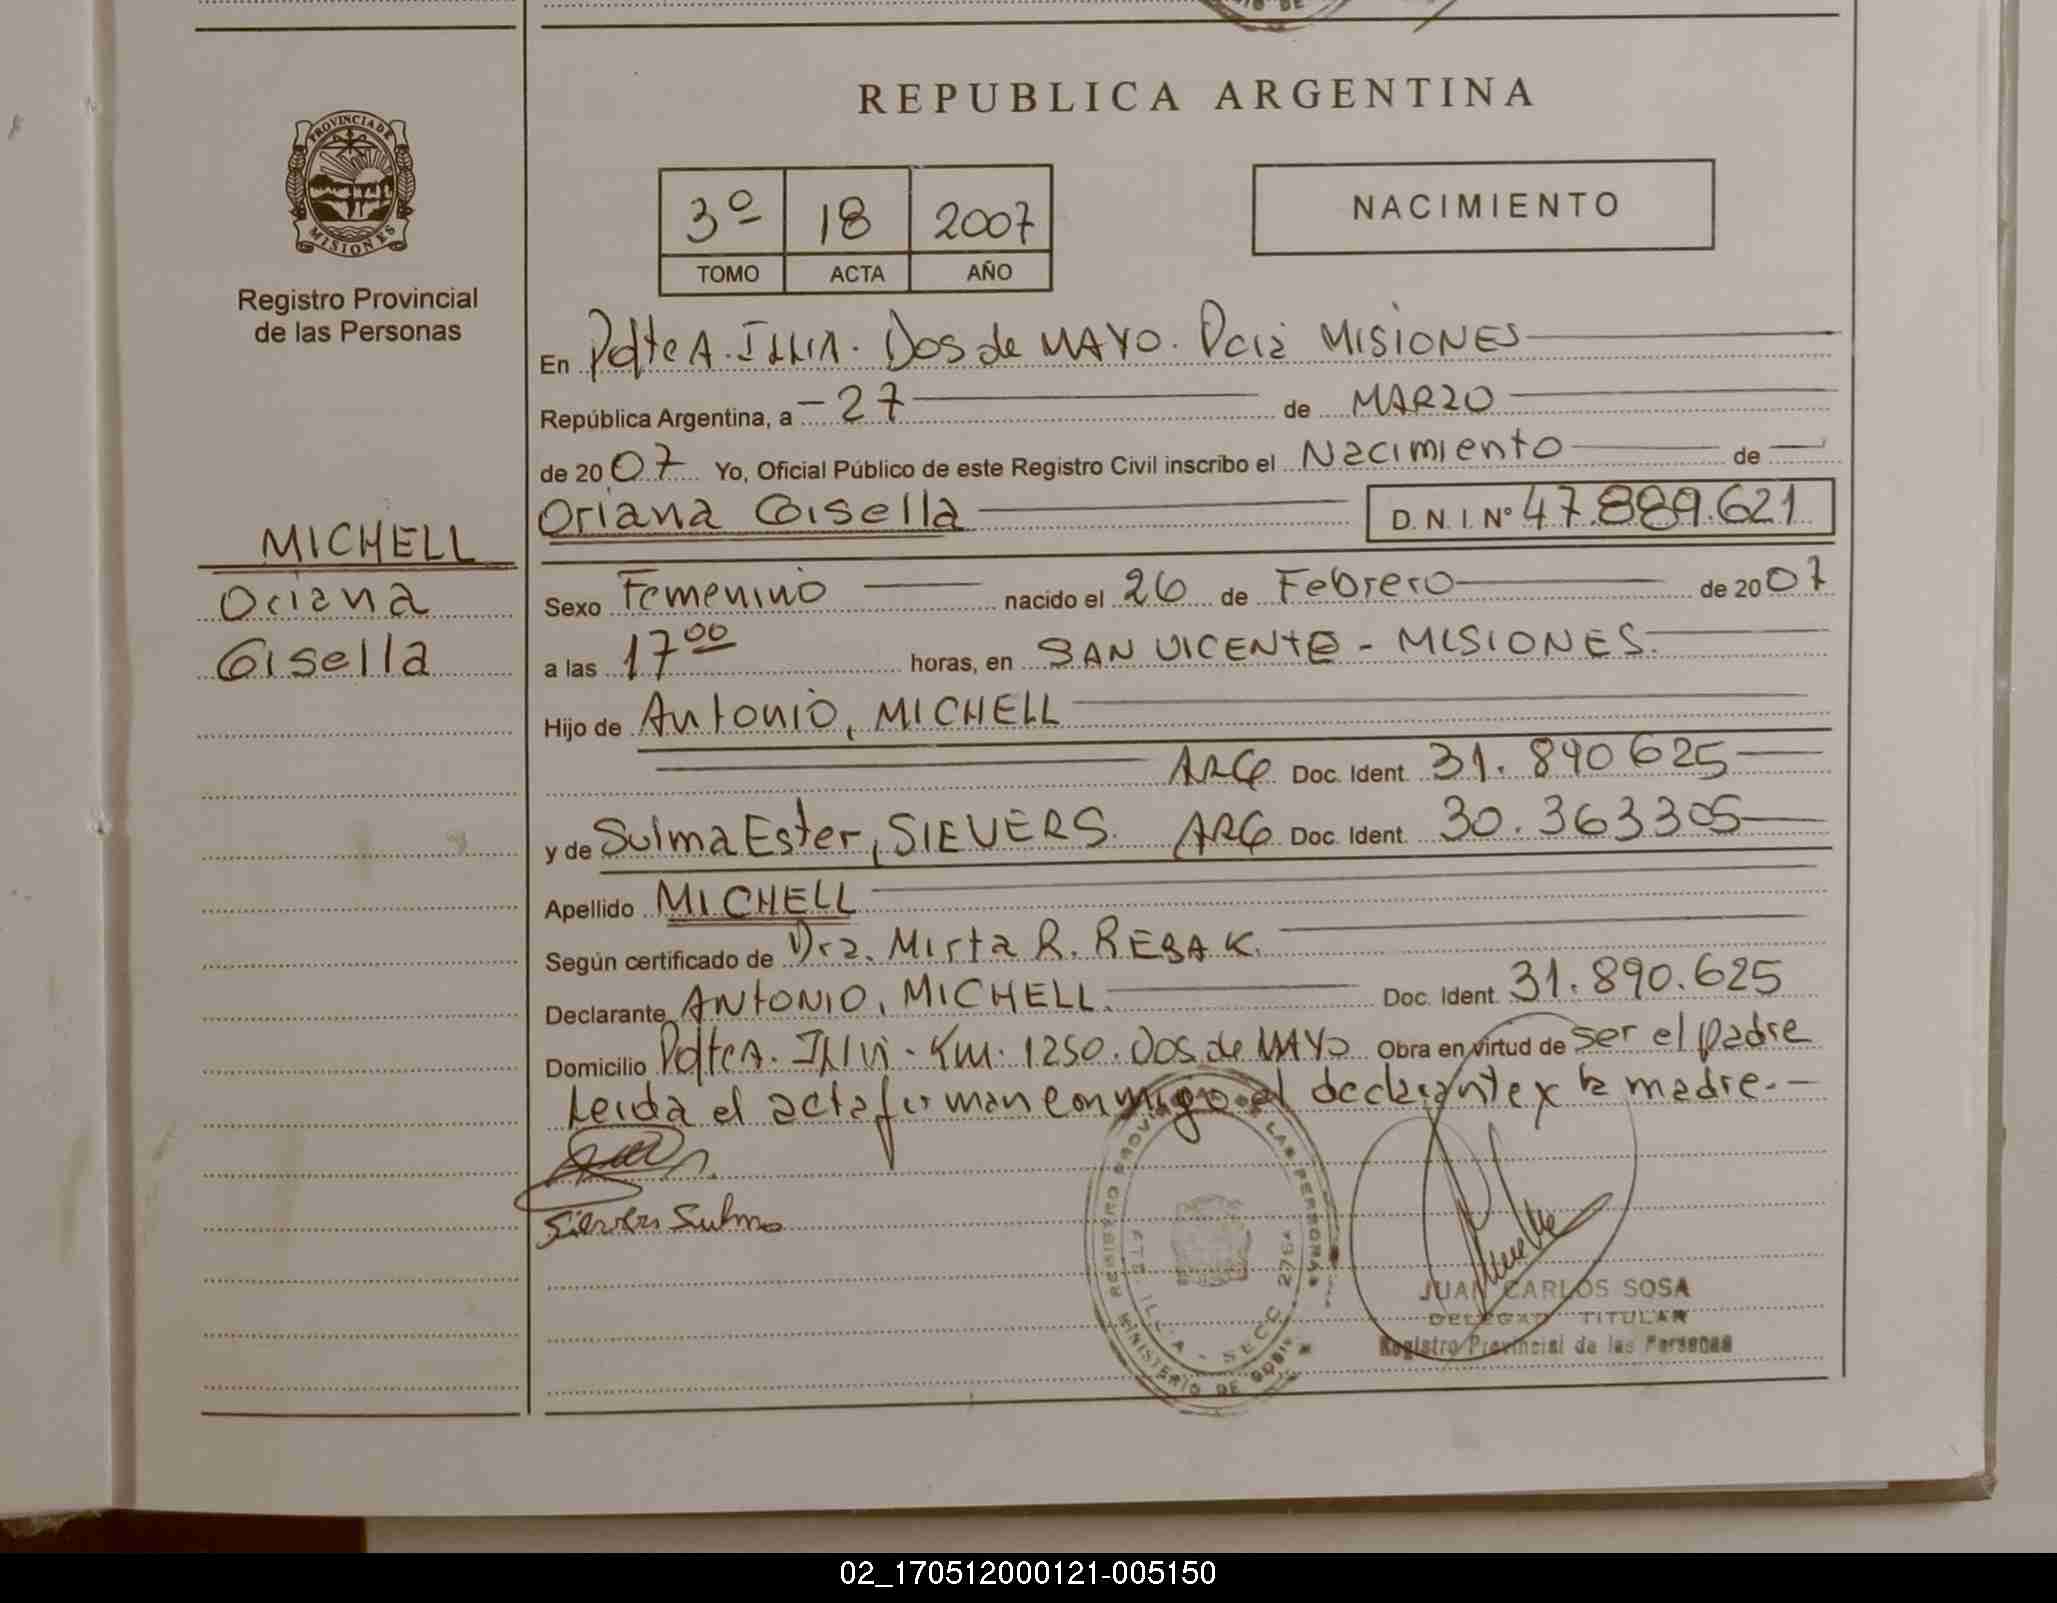 REPUBLICA ARGENTINA
PROVINCIA DE
MISIONES
Registro Provincial
de las Personas
3º 18 2007
TOMO ACTA AÑO
NACIMIENTO
En Pdte A. ILLIA. Dos de MAYO. Pcia MISIONES
República Argentina, a 27 de MARZO
de 2007 Yo, Oficial Público de este Registro Civil inscribo el Nacimiento de
Oriana Gisella D. N. I. Nº 47.889.621
MICHELL
Oriana
Gisella
Sexo Femenino nacido el 26 de Febrero de 2007
a las 17 00 horas, en SAN VICENTE - MISIONES.
Hijo de Antonio, MICHELL
ARG Doc. Ident. 31.890625
y de Sulma Ester, SIEVERS. ARG Doc. Ident. 30.363305
Apellido MICHELL
Según certificado de Dra. Mirta R. REBAK.
Declarante ANTONIO, MICHELL. Doc. Ident. 31.890.625
Domicilio Pdte A. Illia. Km. 1250. Dos de MAYO Obra en virtud de ser el padre
Leida el acta firman conmigo el declarante x la madre.-
Sievers Sulma
REGISTRO PROVINCIAL LAS PERSONAS
PTE. ILLIA - SECC. 2764
MINISTERIO DE GOBIE
JUAN CARLOS SOSA
DELEGADO TITULAR
Registro Provincial de las Personas
02_170512000121-005150